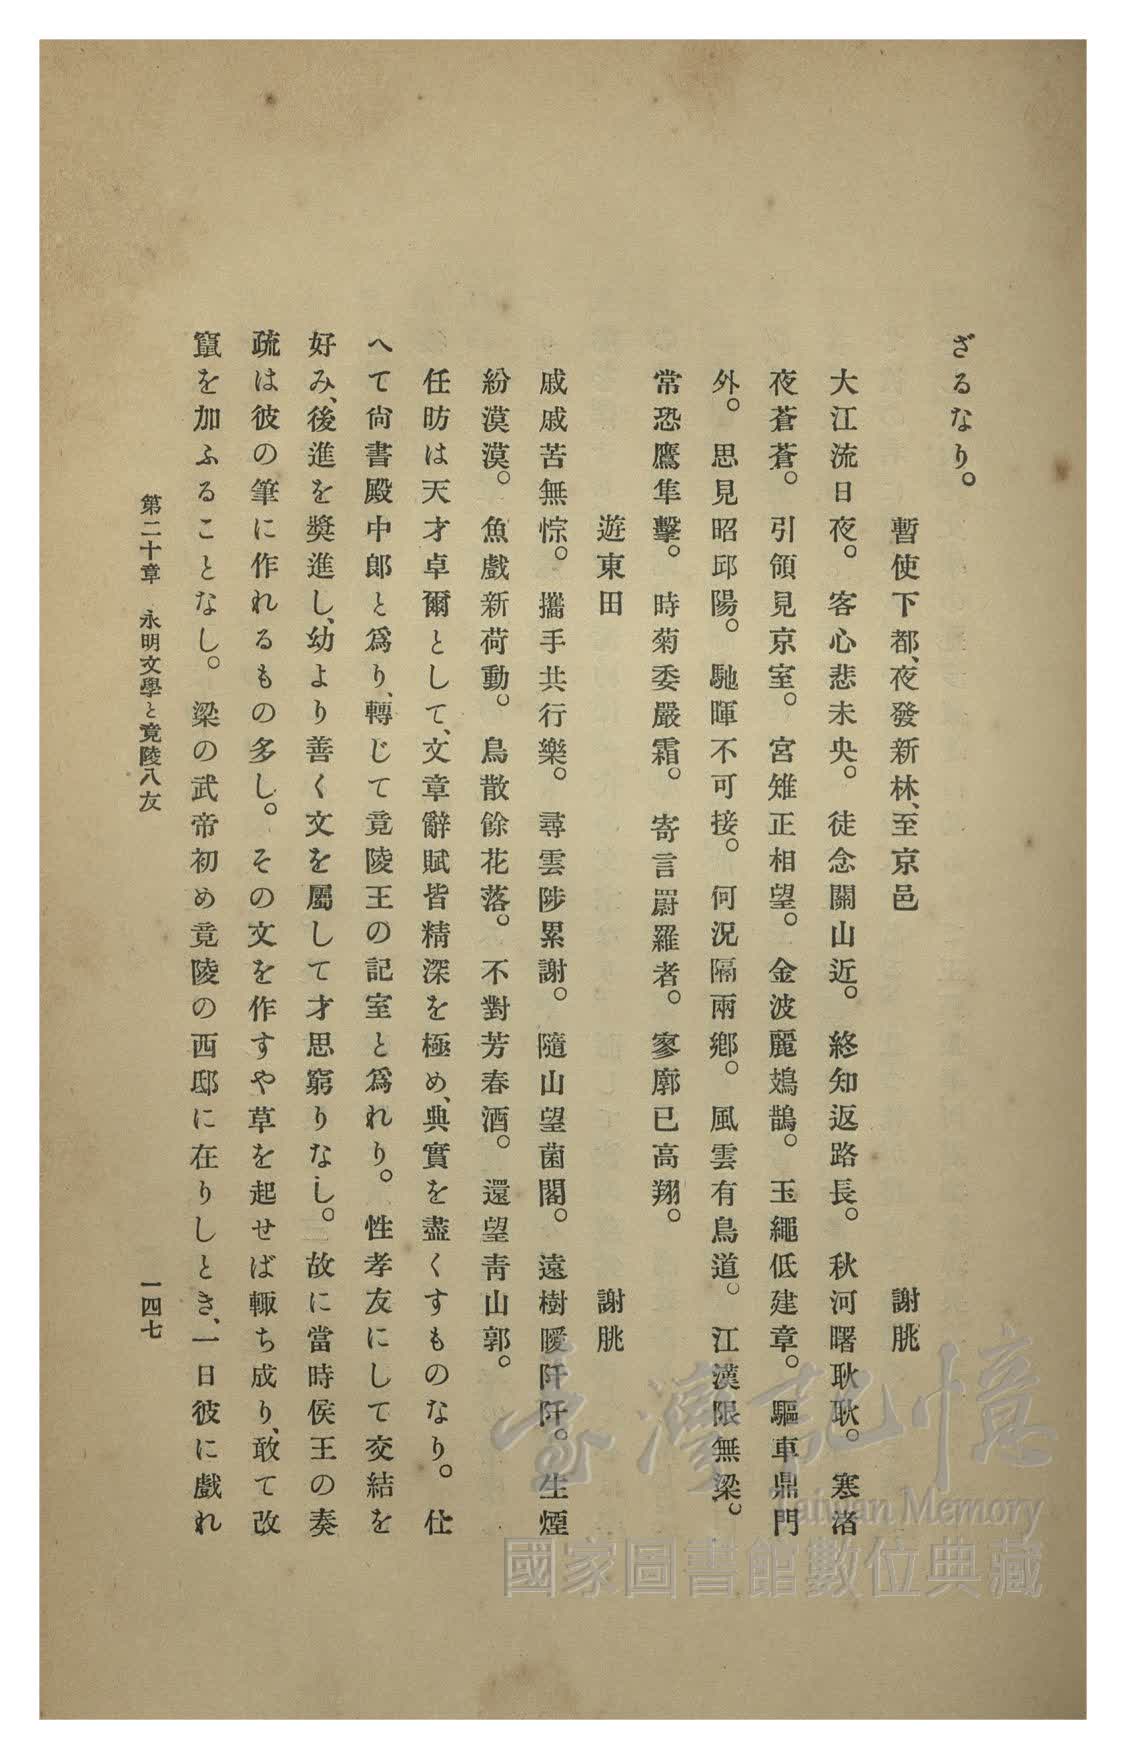 ざるなり。
暫使下都、夜發新林、至京邑　謝朓
大江流日夜。客心悲未央。徒念關山近。終知返路長。秋河曙耿耿。寒渚
夜蒼蒼。引領見京室。宮雉正相望。金波麗鳷鵲。玉繩低建章。驅車鼎門
外。思見昭邱陽。馳暉不可接。何況隔兩鄉。風雲有鳥道。江漢限無梁。
常恐鷹隼擊。時菊委嚴霜。寄言罻羅者。寥廓已高翔。
遊東田　謝朓
戚戚苦無悰。攜手共行樂。尋雲陟累謝。隨山望菌閣。遠樹曖阡阡。生煙
紛漠漠。魚戲新荷動。鳥散餘花落。不對芳春酒。還望靑山郭。
任昉は天才卓爾として、文章辭賦皆精深を極め、典實を盡くすものなり。仕
へて尙書殿中郞と爲り、轉じて竟陵王の記室と爲れり。性孝友にして交結を
好み、後進を奬進し、幼より善く文を屬して才思窮りなし。故に當時侯王の奏
疏は彼の筆に作れるもの多し。その文を作すや草を起せば輙ち成り、敢て改
竄を加ふることなし。梁の武帝初め竟陵の西邸に在りしとき、一日彼に戲れ
第二十章　永明文學と竟陵八友　一四七
臺灣記憶
Taiwan Memory
國家圖書館數位典藏